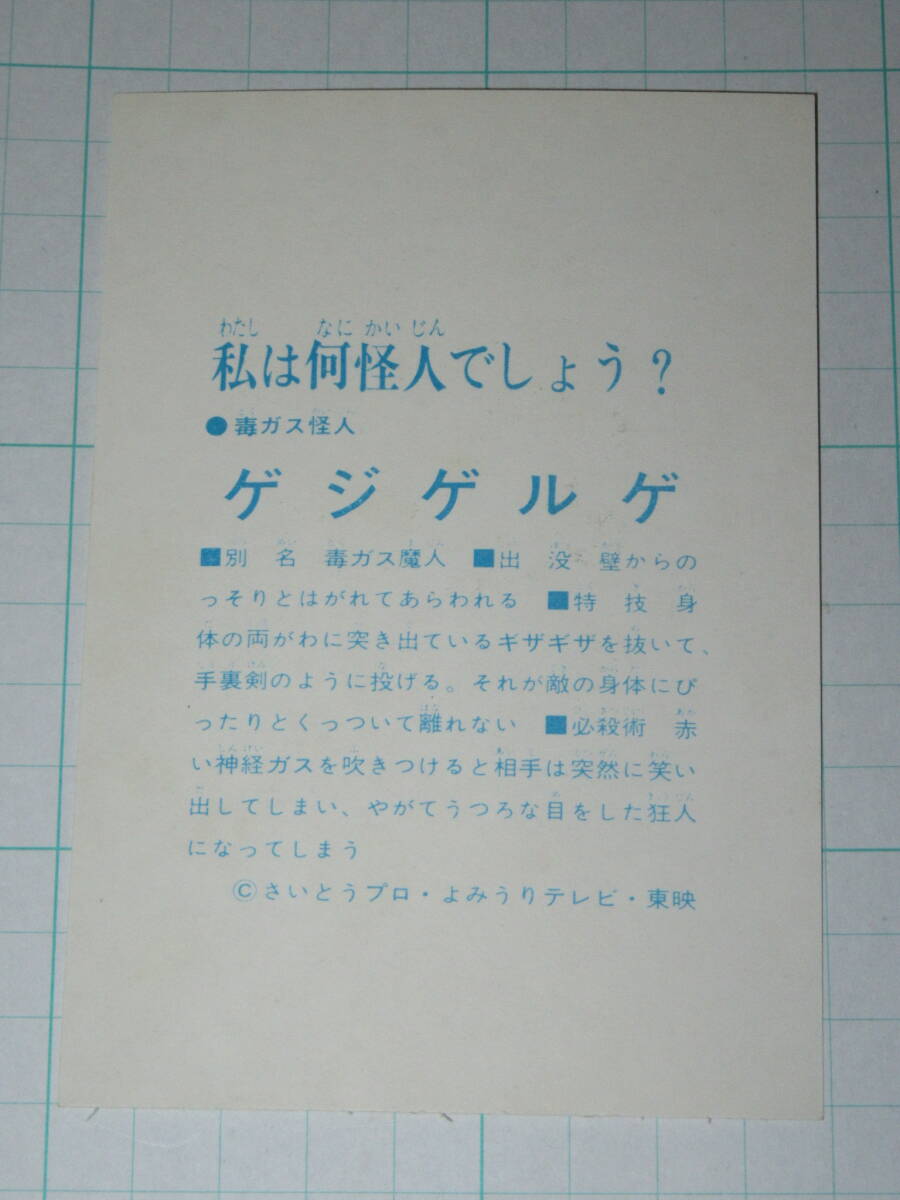 わたし なに かい じん
私は何怪人でしょう？
●毒ガス怪人
ゲジゲルゲ
■別 名 毒ガス魔人 ■出 没 壁からの
っそりとはがれてあらわれる ■特 技 身
体の両がわに突き出ているギザギザを抜いて、
手裏剣のように投げる。それが敵の身体にぴ
ったりとくっついて離れない ■必殺術 赤
い神経ガスを吹きつけると相手は突然に笑い
出してしまい、やがてうつろな目をした狂人
になってしまう
©さいとうプロ・よみうりテレビ・東映